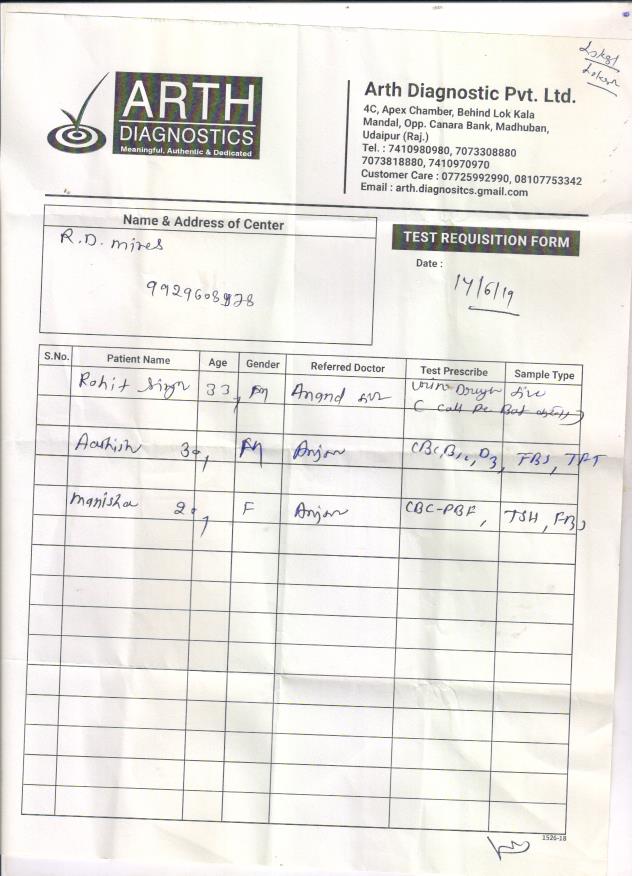 ARTH
DIAGNOSTICS
Meaningful, Authentic & Dedicated
Arth Diagnostic Pvt. Ltd.
4C, Apex Chamber, Behind Lok Kala
Mandal, Opp. Canara Bank, Madhuban,
Udaipur (Raj.)
Tel. : 7410980980, 7073308880
7073818880, 7410970970
Customer Care : 07725992990, 08107753342
Email : arth.diagnositcs.gmail.com
Name & Address of Center
R.D. mines
TEST REQUISITION FORM
Date :
14/6/19
S.No. Patient Name Age Gender Referred Doctor Test Prescribe Sample Type
Rohit Singh 33, M Anand
C call Pe Bat
Aashish 30, M Anjan CBC, B12, D3, FBS,
Manisha 20, F Anjan CBC-PBF, TSH, FBS
1526-18